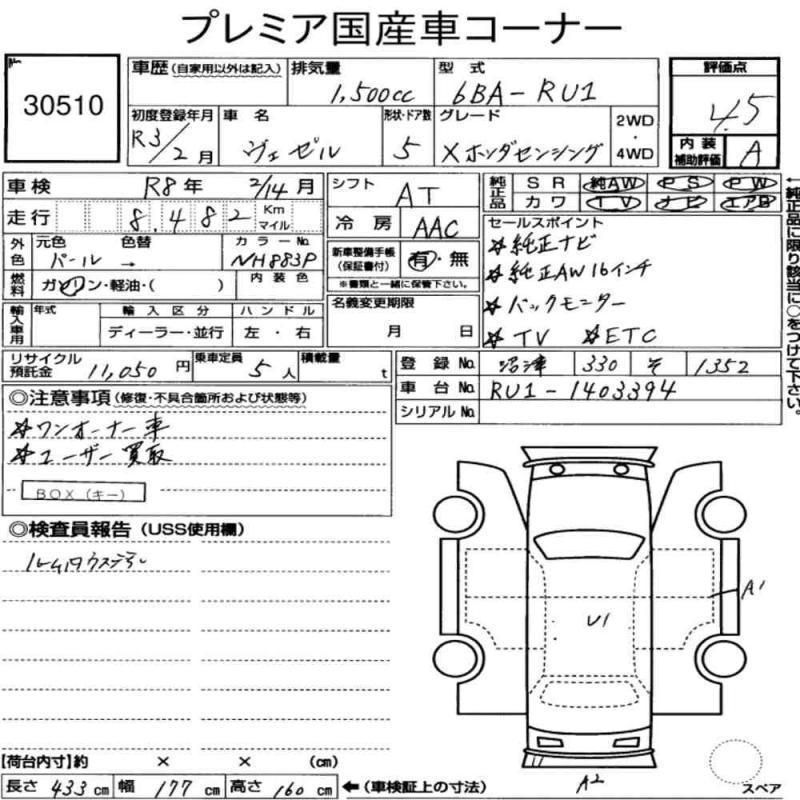 プレミア国産車コーナー
No 30510
車歴(自家用以外は記入) 排気量 1,500cc 型式 6BA-RU1 評価点 4.5
初度登録年月 R3/2月 車名 ヴェゼル 形状・ドア数 5 グレード Xホンダセンシング 2WD・4WD
内装補助評価 A
車検 R8年 2/14月 シフト AT 純正品 SR 純AW PS PW
カワ TV ナビ エアB
走行 8,482 Km マイル 冷房 AAC
外色 元色 パール 色替 → カラーNo. NH883P
新車整備手帳(保証書付) 有・無
※書類と一緒に保管下さい。
燃料 ガソリン・軽油・( ) 内装色
セールスポイント
☆純正ナビ
☆純正AW16インチ
☆バックモニター
☆TV ☆ETC
←純正品に限り該当に○をつけて下さい。
輸入車用 年式 輸入区分 ディーラー・並行 ハンドル 左・右
名義変更期限 月 日
リサイクル預託金 11,050円 乗車定員 5人 積載量 t
登録No. 沼津 330 そ 1352
車台No. RU1-1403394
シリアルNo.
◎注意事項(修復・不具合箇所および状態等)
☆ワンオーナー車
☆ユーザー買取
BOX(キー)
◎検査員報告(USS使用欄)
A1
U1
A2
スペア
【荷台内寸】約 × × (cm)
長さ 433cm 幅 177cm 高さ 160cm ←(車検証上の寸法)